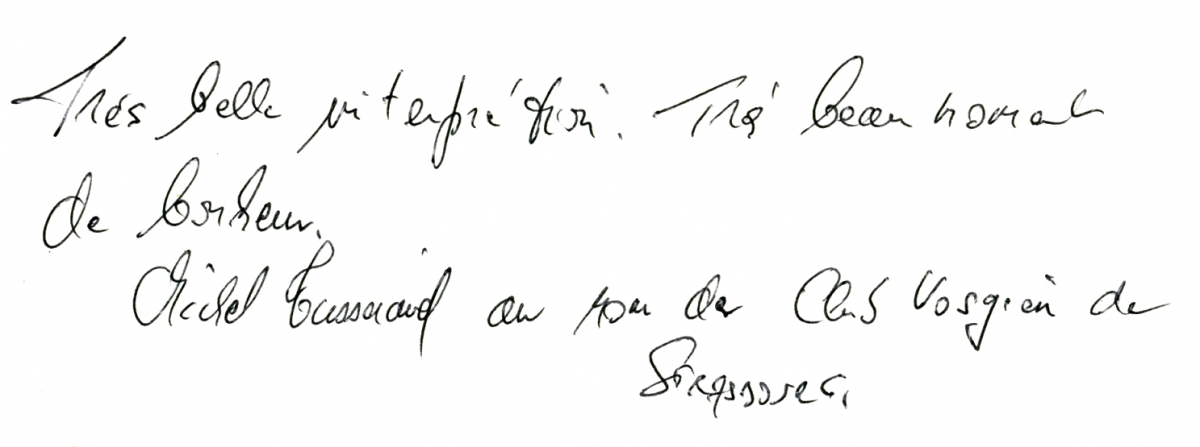 Très belle interprétation. Très beau moment
de bonheur.
Michel au nom du Club Vosgien de
Strasbourg.